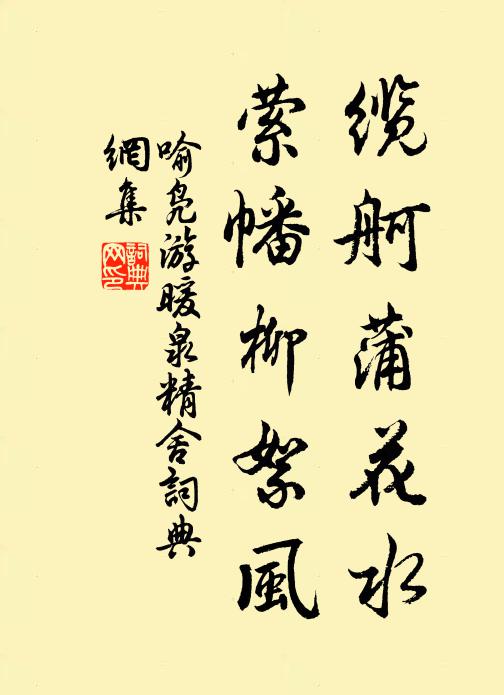 缆舸蒲花水
萦幡柳絮风
喻凫游暖泉精舍词典
網集
詞典
网印